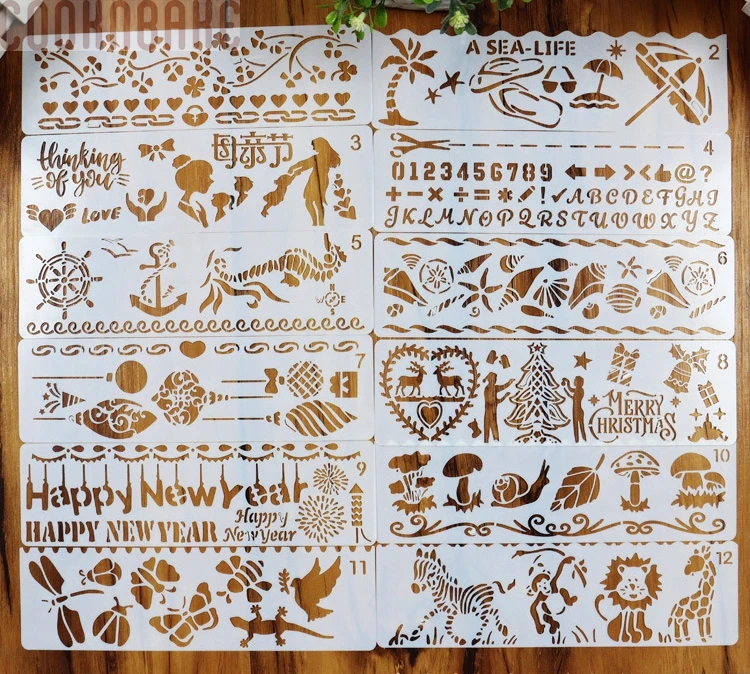 COOKNBAKE
A SEA-LIFE
2
thinking
of you
LOVE
母亲节
3
4
0123456789
@ ?
+ - × ÷ = * ! ✓ ABCDEFGHI
JKLMNOPQRSTUVWXYZ
5
N
W E
S
6
7
8
MERRY
CHRISTMAS
9
Happy New Year
HAPPY NEW YEAR
Happy
New Year
10
11
12